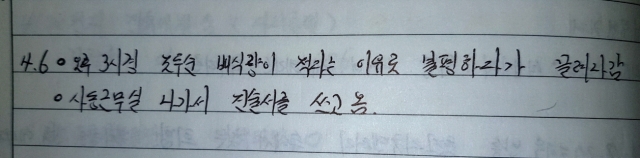 4.6 o 오후 3시경 조두순 배식량이 적다는 이유로 불평하다가 끌려나감
o 사동근무실 나가서 진술서를 쓰고 옴.